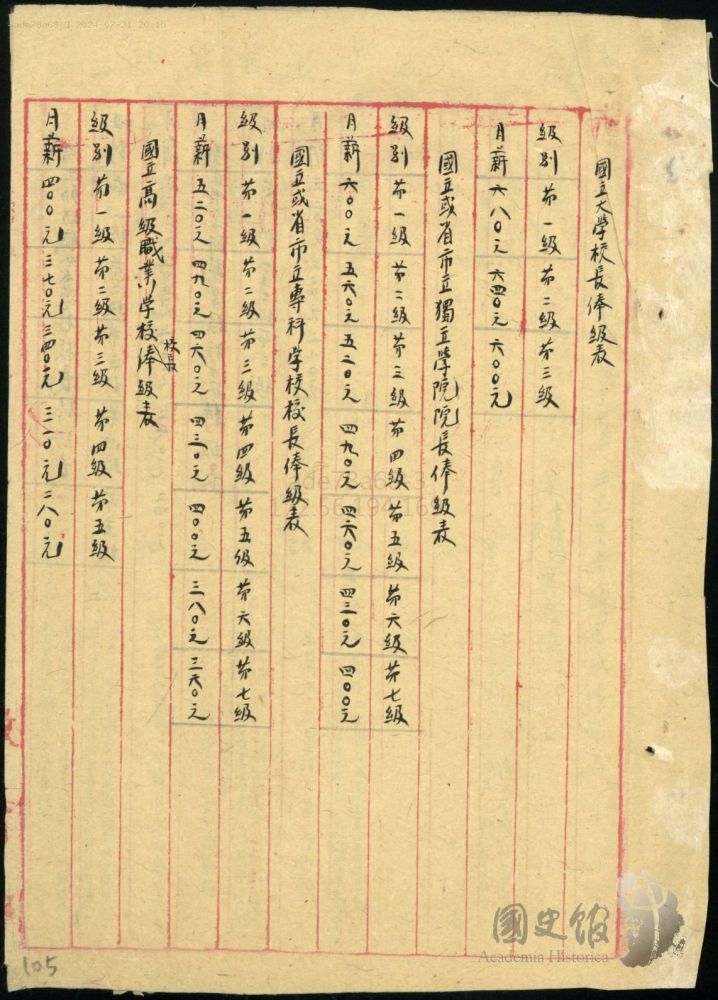 國立大学校長俸級表
級別 苐一級 苐二級 苐三級
月薪 六八〇元 六四〇元 六〇〇元
國立或省市立獨立學院院長俸級表
級別 苐一級 苐二級 苐三級 苐四級 苐五級 苐六級 苐七級
月薪 六〇〇元 五六〇元 五二〇元 四九〇元 四六〇元 四三〇元 四〇〇元
國立或省市立專科学校校長俸級表
級別 苐一級 苐二級 苐三級 苐四級 苐五級 苐六級 苐七級
月薪 五二〇元 四九〇元 四六〇元 四三〇元 四〇〇元 三八〇元 三六〇元
國立高級職業学校校長俸級表
級別 苐一級 苐二級 苐三級 苐四級 苐五級
月薪 四〇〇元 三七〇元 三四〇元 三一〇元 二八〇元
105
國史館
Academia Historica